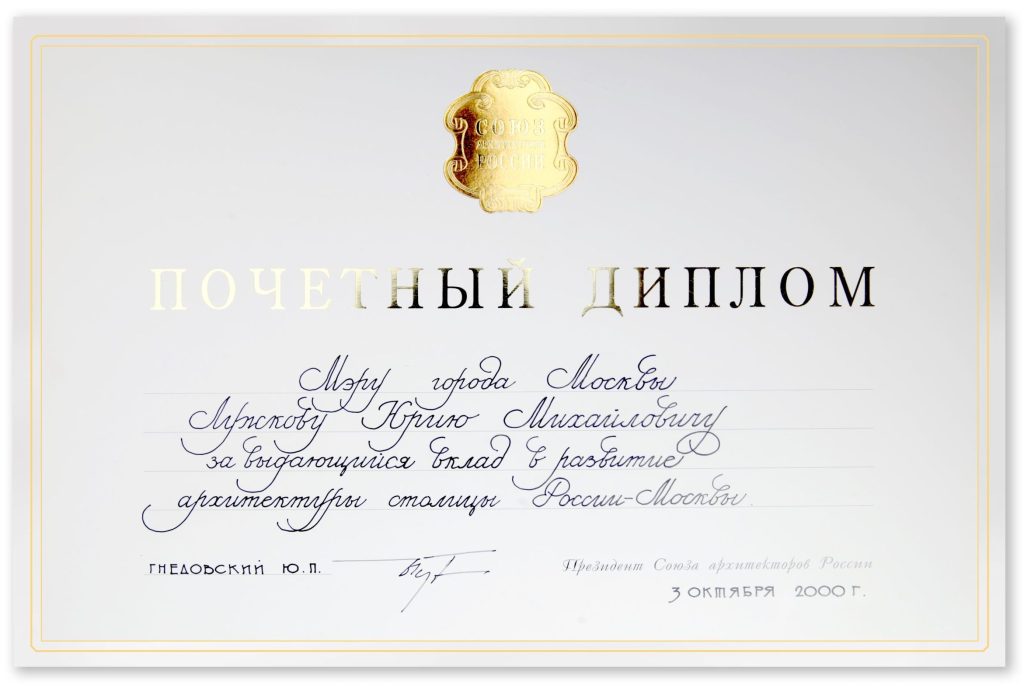 СОЮЗ
АРХИТЕКТОРОВ
РОССИИ
ПОЧЕТНЫЙ ДИПЛОМ
Мэру города Москвы
Лужкову Юрию Михайловичу
за выдающийся вклад в развитие
архитектуры столицы России-Москвы.
ГНЕДОВСКИЙ Ю.П.
Президент Союза архитекторов России
3 ОКТЯБРЯ 2000 Г.